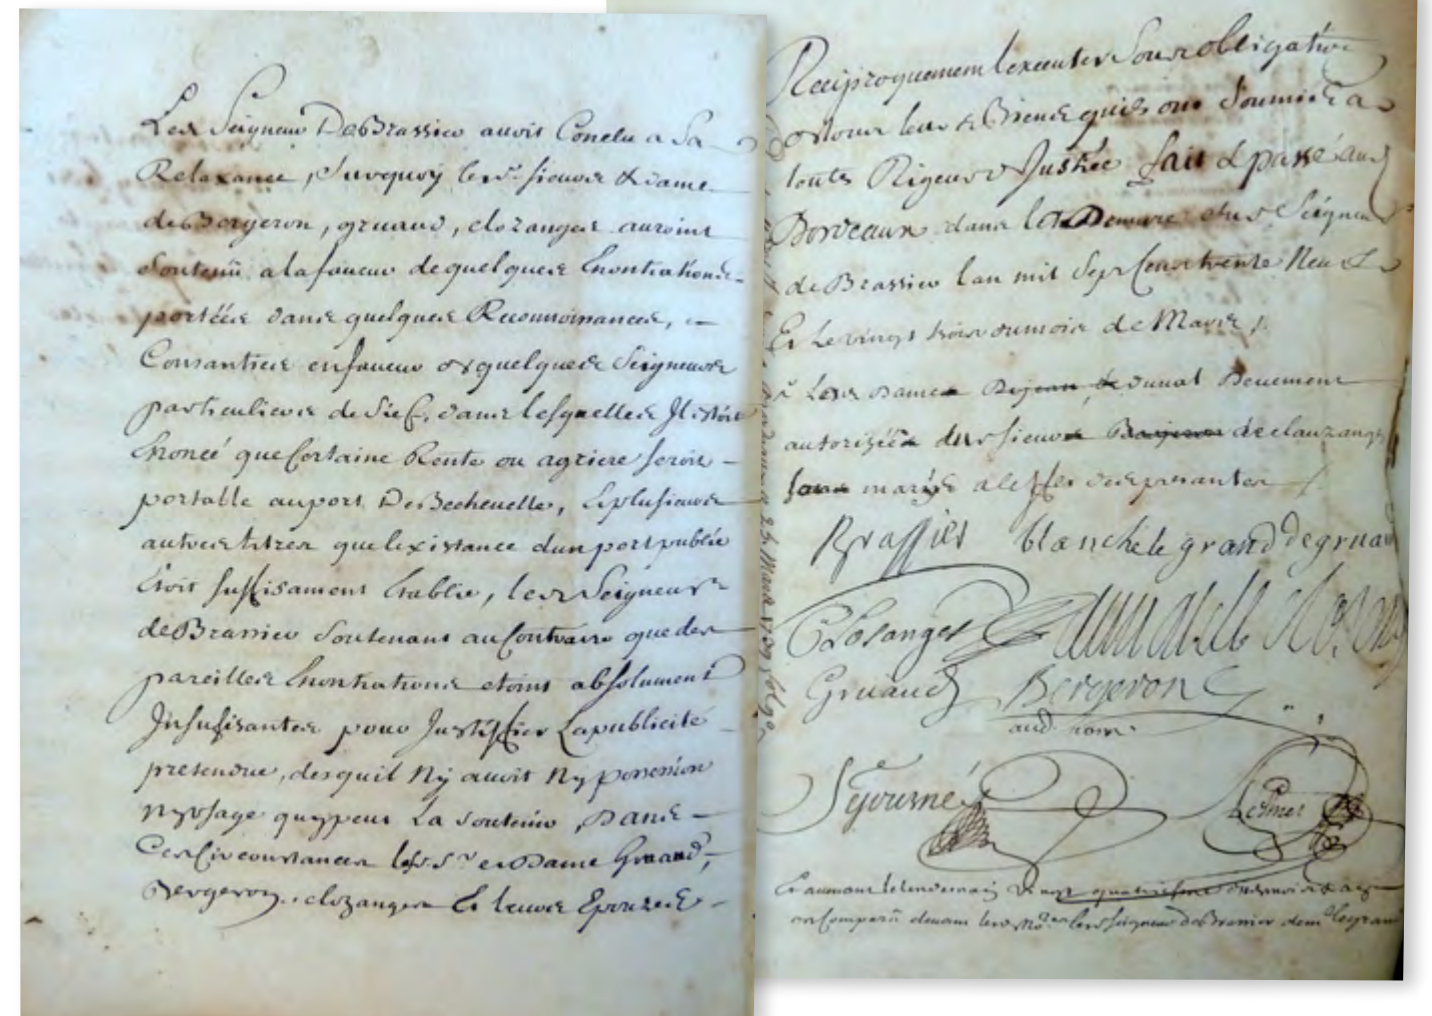 Led. Seigneur De Brassier avoit Conclu a Sa
Relaxance, Surquoy lesd. sieurs & dame
de Bergeron, gruaud, closanges auroint
Soutenu a la faveur de quelques Enontiations
portéés dans quelques Reconnoissances,
Consanties en faveur de quelques Seigneurs
particuliers de fief, dans lesquelles Il étoit
Enoncé que Certaine Rente ou agriere seroit
portable au port De Bechevelle, & plusieurs
autres titres que lexistance dun port public
Etoit suffisament Etablie, led. Seigneur
de Brassier Soutenant au Contraire que des
pareilles Enontiations etoint absolument
Insufisantes pour Justiffier La publicité
pretendue, desquil Ny avoit Ny possession
Ny Usage quy peut La Soutenir, Dans
Ces Circonstances lesd. Sr. et Dame Gruaud,
Bergeron, closanges Et leurs Epouses
Reciproquement Lexecuter Sous obligation
de tous leurs Biens quils ont Soumis a
toutes Rigeurs de Justice fait & passé aud.
Bordeaux dans la Demeure dud. Seigneur
de Brassier lan mil Sept Cens trente Neuf
Et Le vingt trois du mois de Mars
Lesd. Dame Dejean de dunal Deuement
autorizéé dud. sieur Bergeron de clauzanges
leurs maris a Leffet des presantes
Brassier blanche le grand de gruau
Closanges
Gruaud Bergeron
aud. nom
Sejourné
Et avenant le lendemain Vingt quatrieme dud. mois de mars
ont Comparu devant lesd. Nores. led. seigneur de Brassier